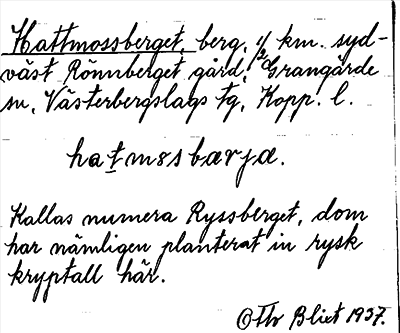 Hattmossberget, berg, 1/2 km. syd-
väst Rönnberget gård, Grangärde
sn, Västerbergslags tg, Kopp. l.
hatmosbærja.
Kallas numera Ryssberget, dom
har nämligen planterat in rysk
kryptall här.
© Th Bliet 1937.